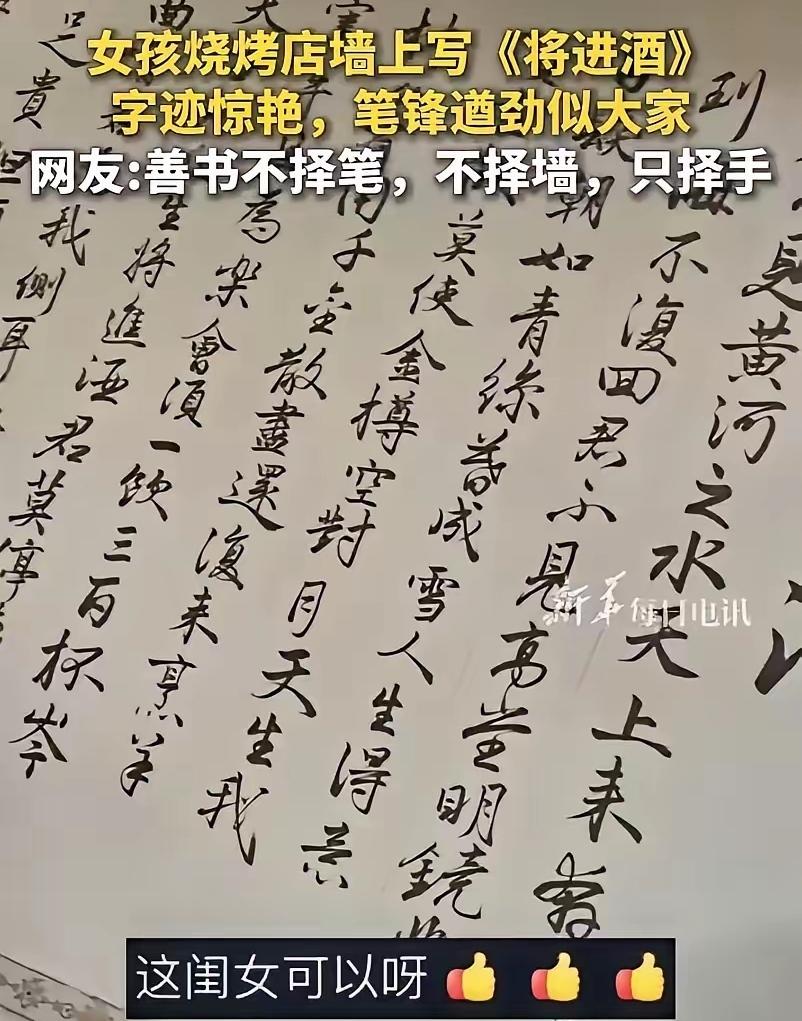 女孩烧烤店墙上写《将进酒》
字迹惊艳，笔锋遒劲似大家
网友:善书不择笔，不择墙，只择手
見黄河之水天上来奔
到海不復回君不見高堂明鏡
朝如青絲暮成雪人生得意
莫使金樽空對月天生我
用千金散盡還復来烹羊
為樂會須一飲三百杯岑
生將進酒君莫停
曲
我側耳
足貴
新华每日电讯
这闺女可以呀👍👍👍